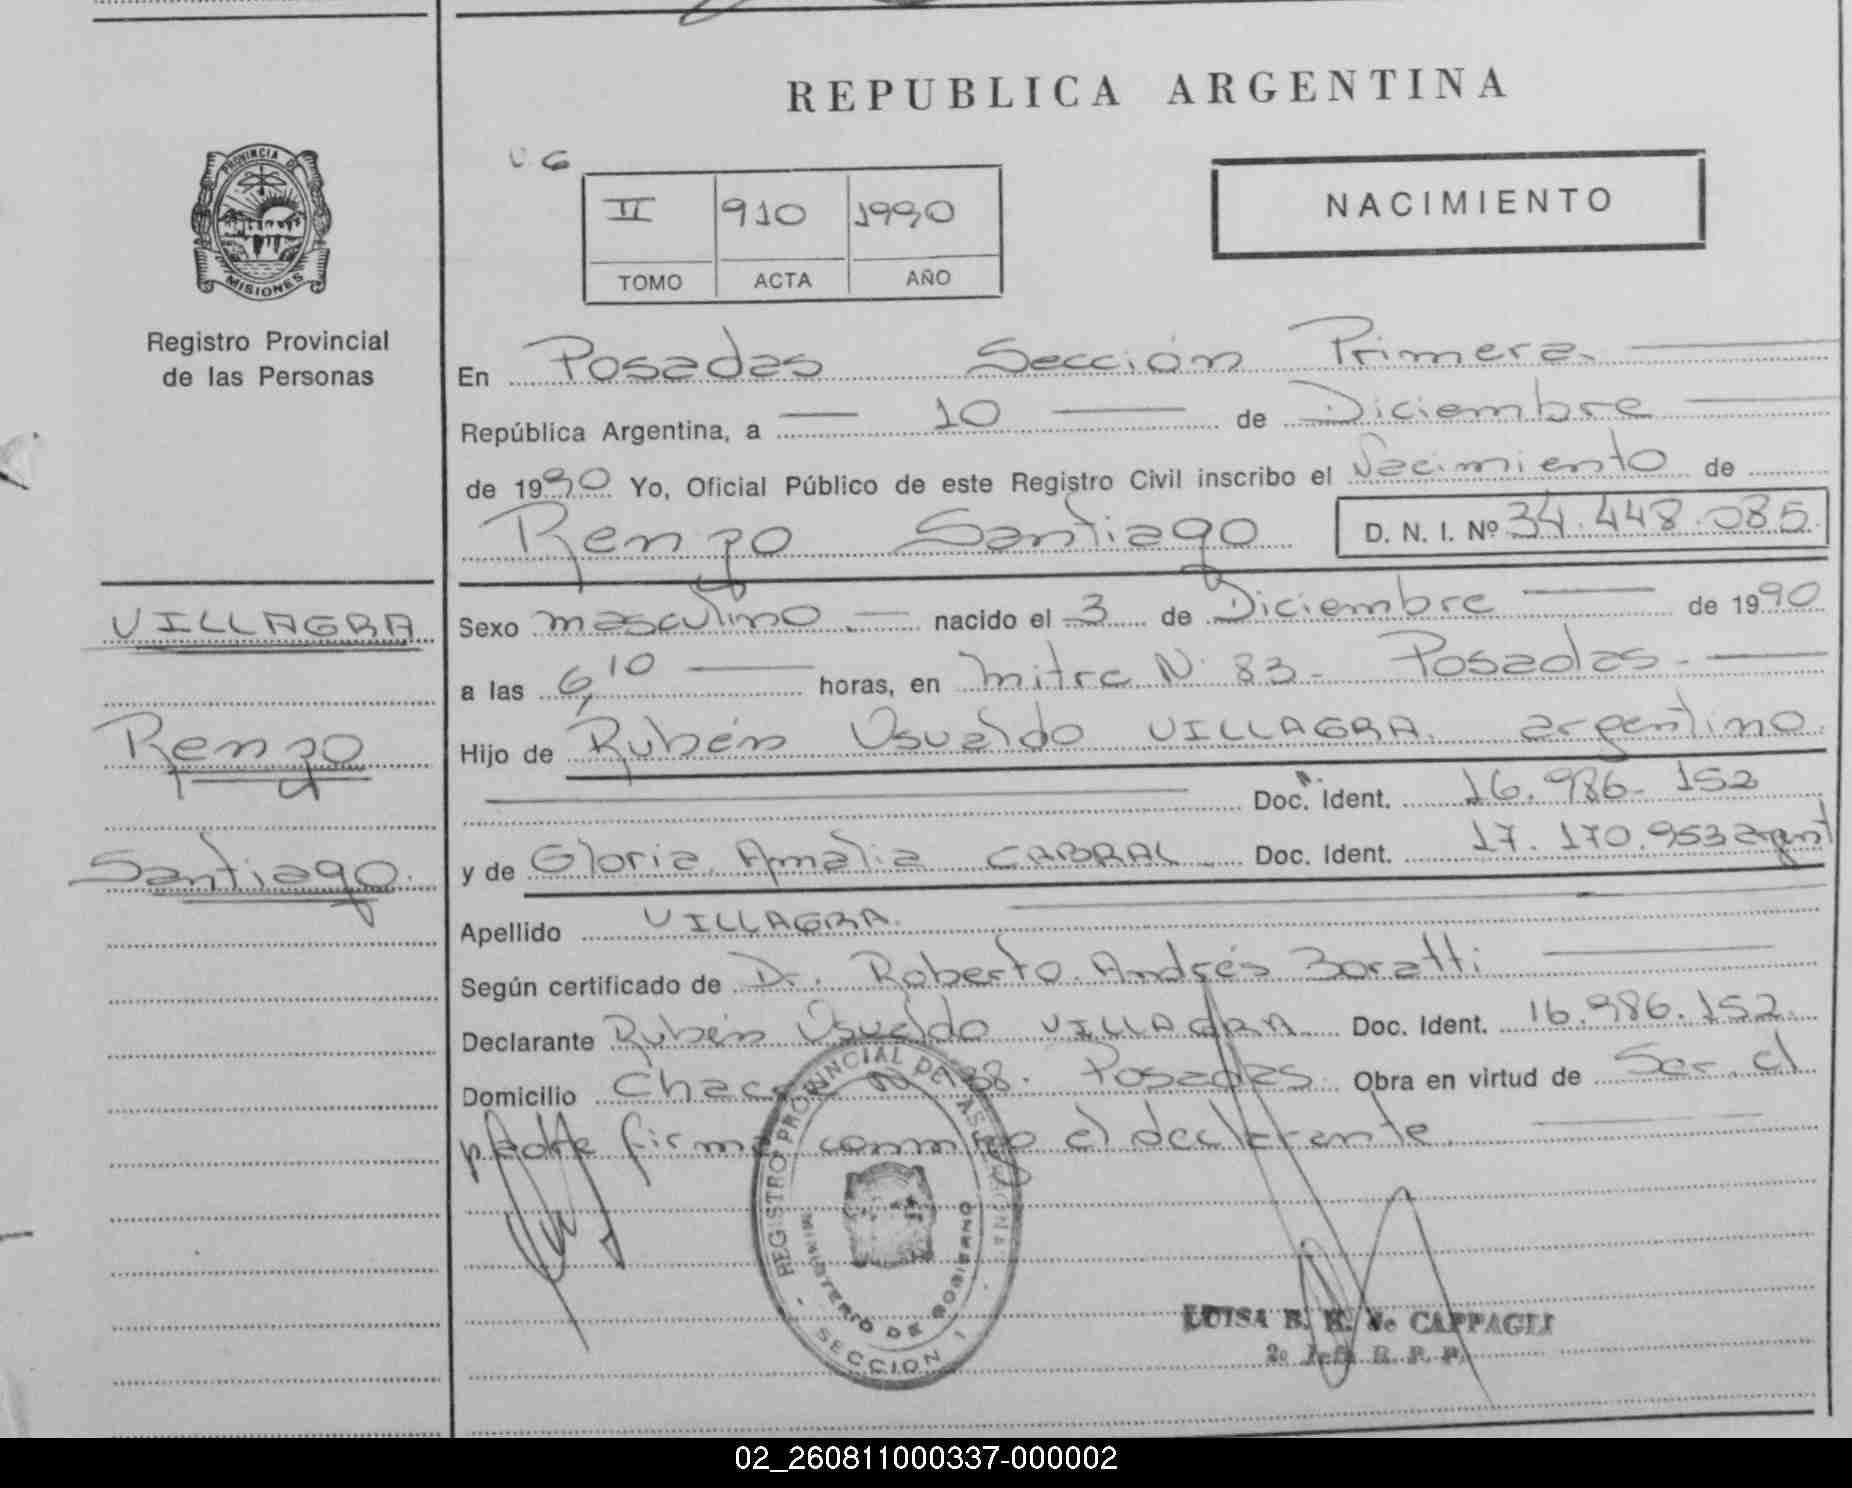 REPUBLICA ARGENTINA
PROVINCIA DE
MISIONES
Registro Provincial
de las Personas
II 910 1990
TOMO ACTA AÑO
NACIMIENTO
En Posadas Sección Primera.
República Argentina, a 10 de Diciembre
de 1990 Yo, Oficial Público de este Registro Civil inscribo el Nacimiento de
Renzo Santiago D. N. I. Nº 34.448.085
VILLAGRA
Renzo
Santiago.
Sexo masculino. nacido el 3 de Diciembre de 1990
a las 6,10 horas, en Mitre N. 83 - Posadas.
Hijo de Rubén Osvaldo VILLAGRA. argentino.
Doc. Ident. 16.986.152
y de Gloria Amalia CABRAL Doc. Ident. 17.170.953 argent
Apellido VILLAGRA.
Según certificado de Dr. Roberto Andrés Boratti
Declarante Rubén Osvaldo VILLAGRA Doc. Ident. 16.986.152.
Domicilio Posadas. Obra en virtud de Ser el
padre firma conmigo el declarante
REGISTRO PROVINCIAL DE LAS PERSONAS
MINISTERIO DE GOBIERNO
SECCION 1
LUISA B. K. de CAPPAGLI
2o Jefe R. P. P.
02_260811000337-000002